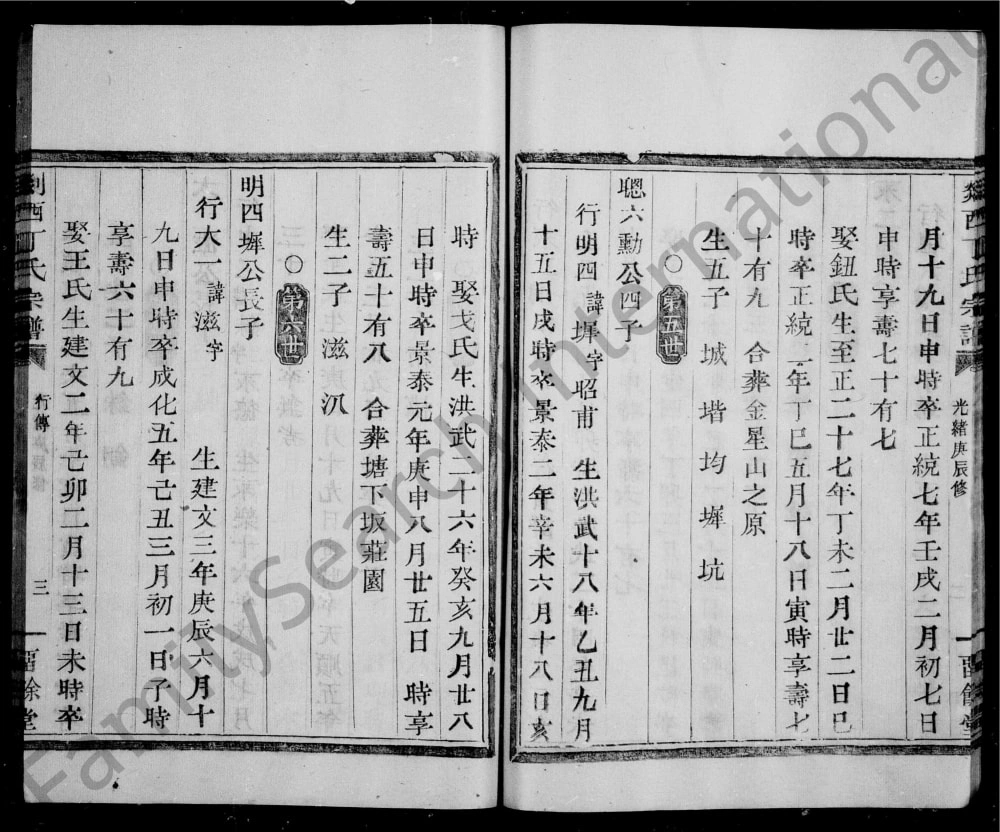 剡西丁氏宗譜
光緒庚辰修
留餘堂
月十九日申時卒正統七年壬戌二月初七日
申時享壽七十有七
娶鈕氏生至正二十七年丁未二月廿二日巳
時卒正統二年丁巳五月十八日寅時享壽七
十有九 合葬金星山之原
生五子 城 堦 均 墀 坑
○ 第五世
聰六勳公四子
行明四 諱墀 字昭甫 生洪武十八年乙丑九月
十五日戌時卒景泰二年辛未六月十八日亥
時 娶戈氏生洪武二十六年癸亥九月廿八
日申時卒景泰元年庚申八月廿五日 時享
壽五十有八 合葬塘下坂莊園
生二子 滋 沉
○ 第六世
明四墀公長子
行大一 諱滋 字 生建文三年庚辰六月十
九日申時卒成化五年己丑三月初一日子時
享壽六十有九
娶王氏生建文二年己卯二月十三日未時卒
剡西丁氏宗譜
行傳
三
留餘堂
FamilySearch International